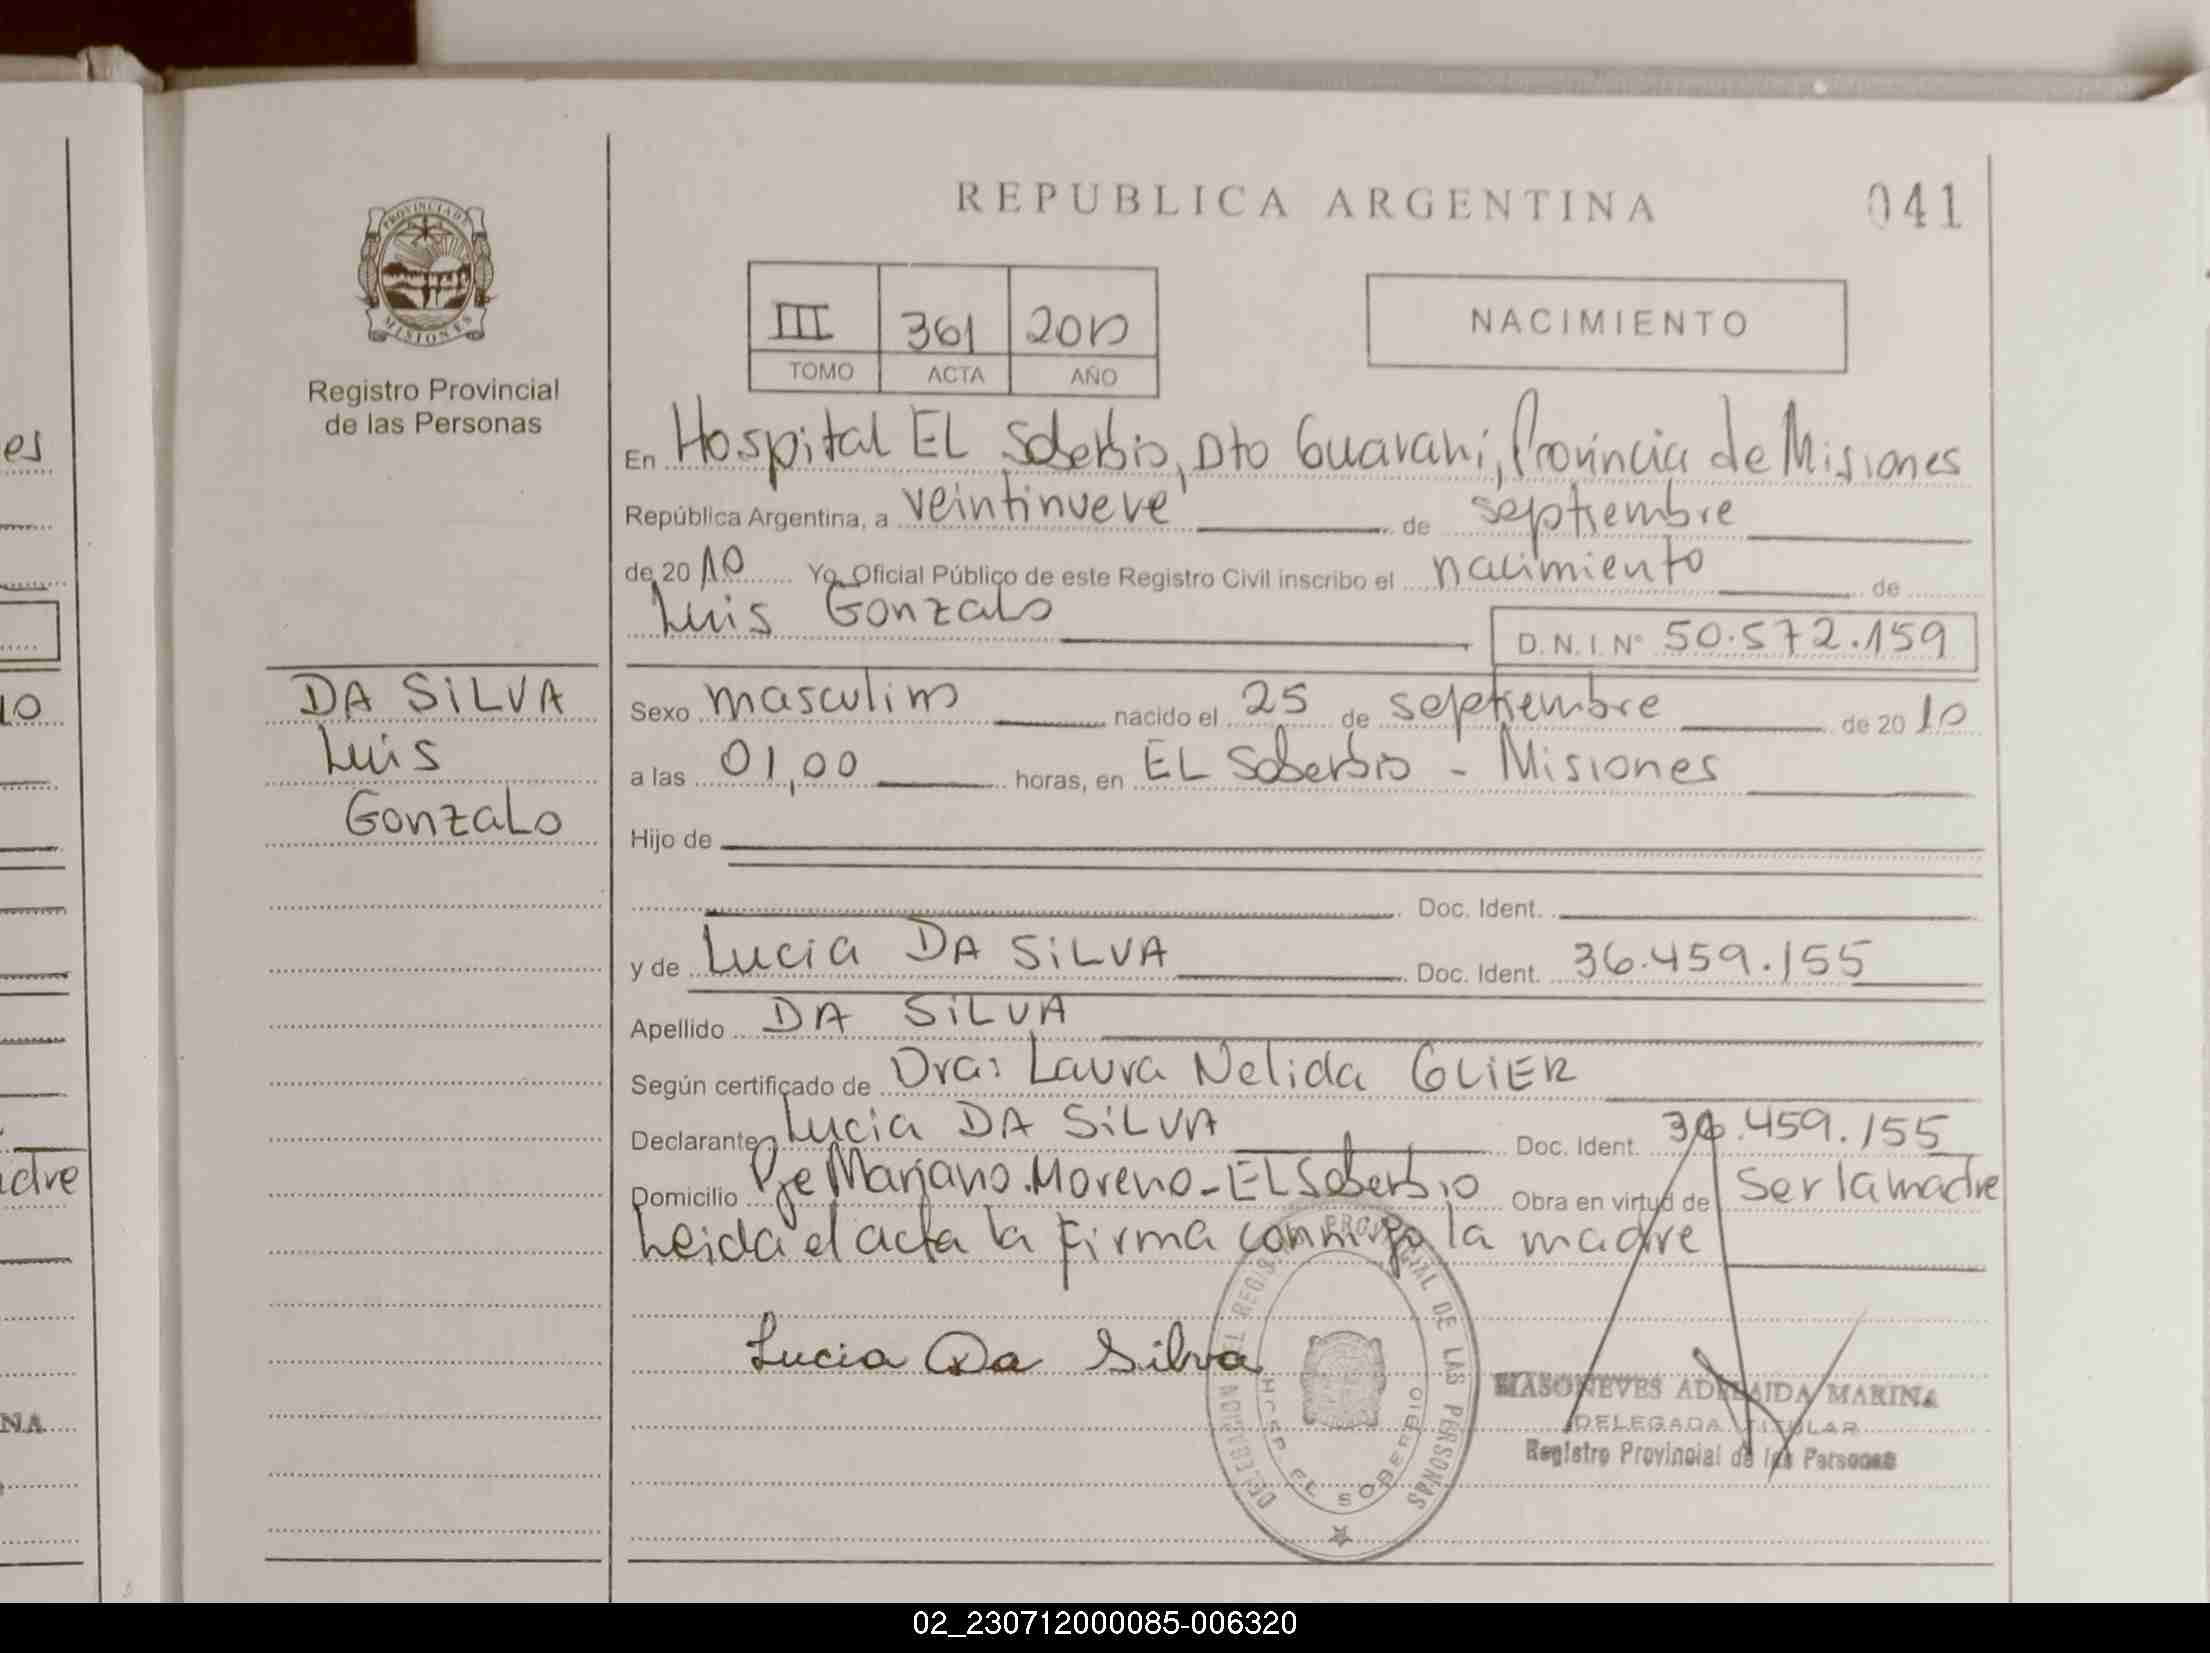 REPUBLICA ARGENTINA
041
PROVINCIA DE
MISIONES
Registro Provincial
de las Personas
III 361 2010
TOMO ACTA AÑO
NACIMIENTO
En Hospital EL Soberbio, Dto Guarani, Provincia de Misiones
República Argentina, a veintinueve de septiembre
de 2010 Yo Oficial Público de este Registro Civil inscribo el nacimiento de
Luis Gonzalo D.N.I.Nº 50.572.159
DA SiLVA
Luis
Gonzalo
Sexo masculino nacido el 25 de septiembre de 2010
a las 01,00 horas, en EL Soberbio - Misiones
Hijo de
Doc. Ident.
y de Lucia DA SiLVA Doc. Ident. 36.459.155
Apellido DA SiLVA
Según certificado de Dra: Laura Nelida GLiER
Declarante Lucia DA SiLVA Doc. Ident. 36.459.155
Domicilio Pje Mariano Moreno - EL Soberbio Obra en virtud de Ser la madre
Leida el acta la firma conmigo la madre
Lucia Da Silva
DELEGACION DEL REGISTRO PROVINCIAL DE LAS PERSONAS
EL SOBERBIO
MASONEVES ADELAIDA MARINA
DELEGADA TITULAR
Registro Provincial de las Personas
es
10
adre
NA
02_230712000085-006320